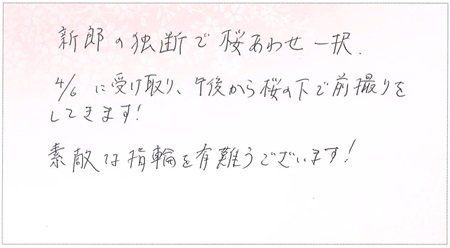 新郎の独断で桜あわせ一択.
4/6 に受け取り、午後から桜の下で前撮りを
してきます!
素敵な指輪を有難うございます!